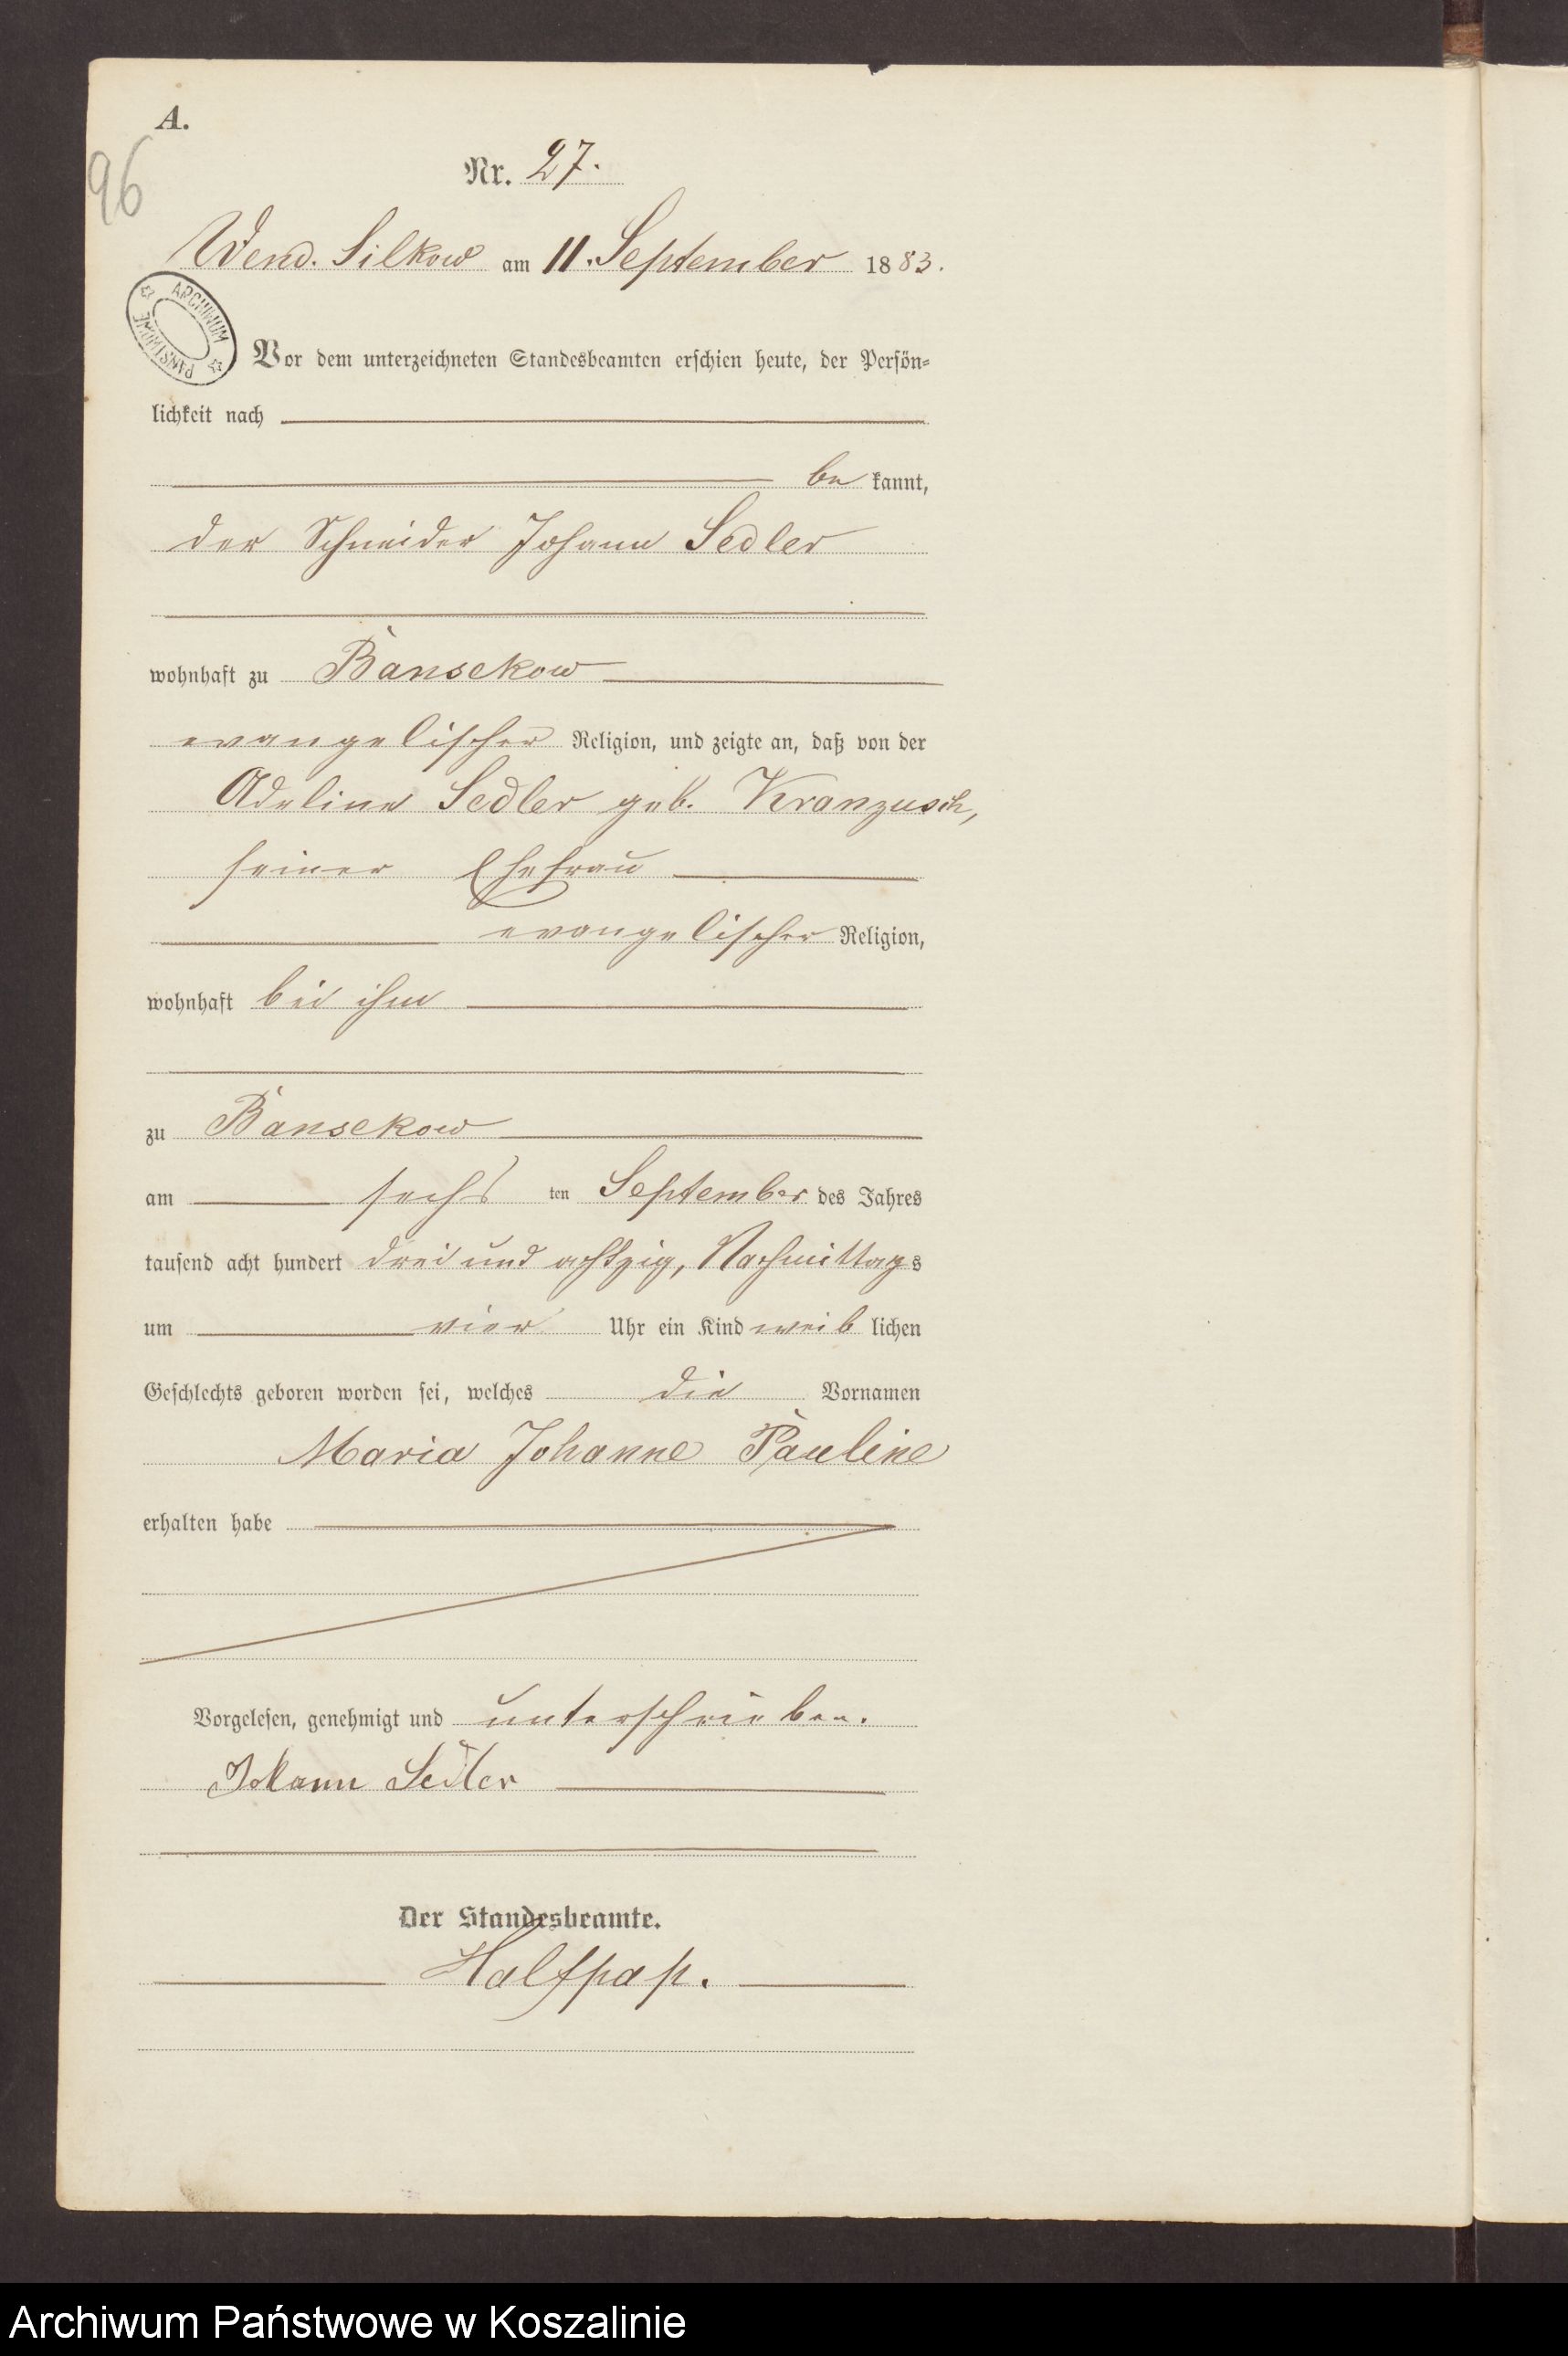 A.
96
Nr. 27.
Wend. Silkow am 11. September 1883.
ARCHIWUM PAŃSTWOWE
Vor dem unterzeichneten Standesbeamten erschien heute, der Persön-
lichkeit nach
be kannt,
der Schneider Johann Sedler
wohnhaft zu Bansekow
evangelischer Religion, und zeigte an, daß von der
Adeline Sedler geb. Kranzusch,
seiner Ehefrau
evangelischer Religion,
wohnhaft bei ihm
zu Bansekow
am sechs ten September des Jahres
tausend acht hundert drei und achtzig, Nachmittags
um vier Uhr ein Kind weib lichen
Geschlechts geboren worden sei, welches die Vornamen
Maria Johanne Pauline
erhalten habe
Vorgelesen, genehmigt und unterschrieben.
Johann Sedler
Der Standesbeamte.
Halfpap.
Archiwum Państwowe w Koszalinie